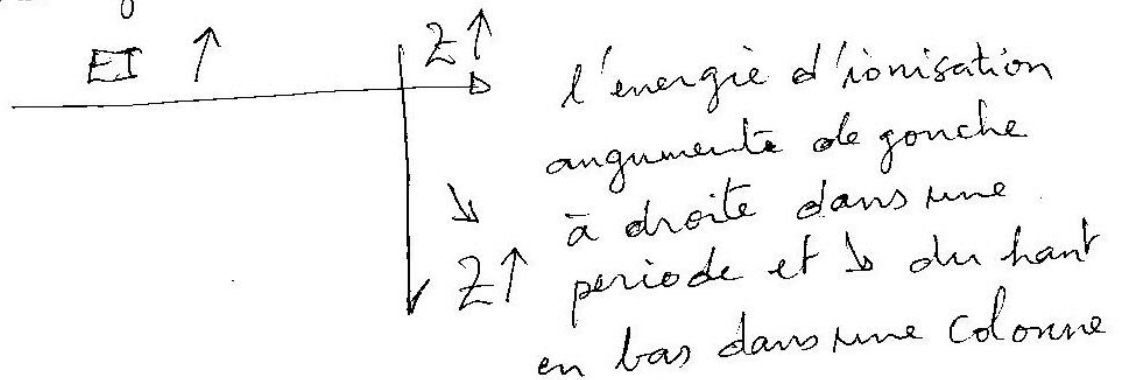 EI ↑
Z↑
l'energie d'ionisation
augmente de gouche
à droite dans une
periode et ↘ du haut
↘
Z↑
en bas dans une colonne